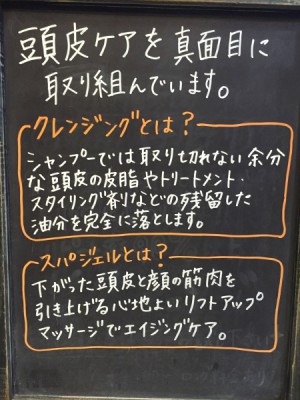 頭皮ケアを真面目に
取り組んでいます。
クレンジングとは?
シャンプーでは取り切れない余分
な頭皮の皮脂やトリートメント・
スタイリング剤などの残留した
油分を完全に落とします。
スパジェルとは?
下がった頭皮と顔の筋肉を
引き上げる心地よいリフトアップ
マッサージでエイジングケア。